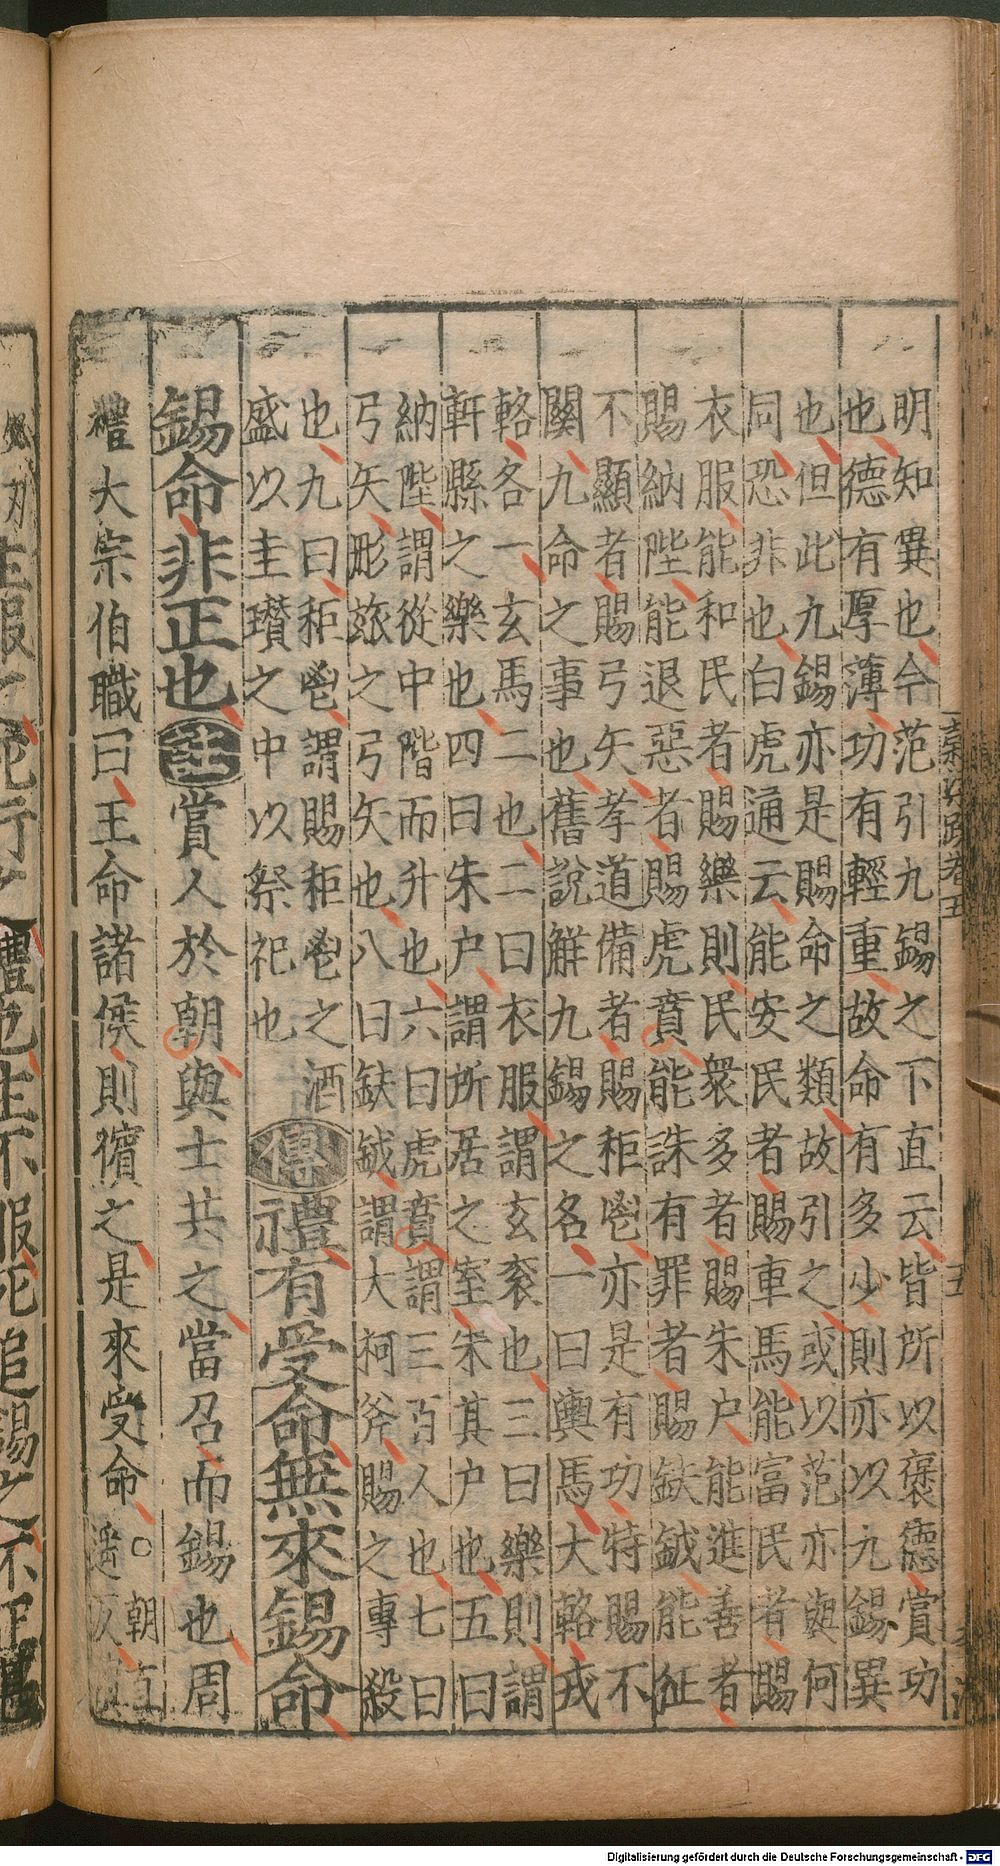 明知異也今范引九錫之下直云皆所以褒德賞功
也德有厚薄功有輕重故命有多少則亦以九錫異
也但此九錫亦是賜命之類故引之或以范亦與何
同恐非也白虎通云能安民者賜車馬能富民者賜
衣服能和民者賜樂則民衆多者賜朱户能進善者
賜納陛能退惡者賜虎賁能誅有罪者賜鈇鉞能征
不顯者賜弓矢孝道備者賜秬鬯亦是有功特賜不
關九命之事也舊說解九錫之名一曰輿馬大輅戎
輅各一玄馬二也二曰衣服謂玄衮也三曰樂則謂
軒縣之樂也四曰朱户謂所居之室朱其户也五曰
納陛謂從中階而升也六曰虎賁謂三百人也七曰
弓矢彤玈之弓矢也八曰鈇鉞謂大柯斧賜之專殺
也九曰秬鬯謂賜秬鬯之酒
盛以圭瓚之中以祭祀也 傳禮有受命無來錫命
錫命非正也注賞人於朝與士共之當召而錫也周
禮大宗伯職曰王命諸侯則儐之是來受命○朝直
遥反
Digitalisierung gefördert durch die Deutsche Forschungsgemeinschaft - DFG